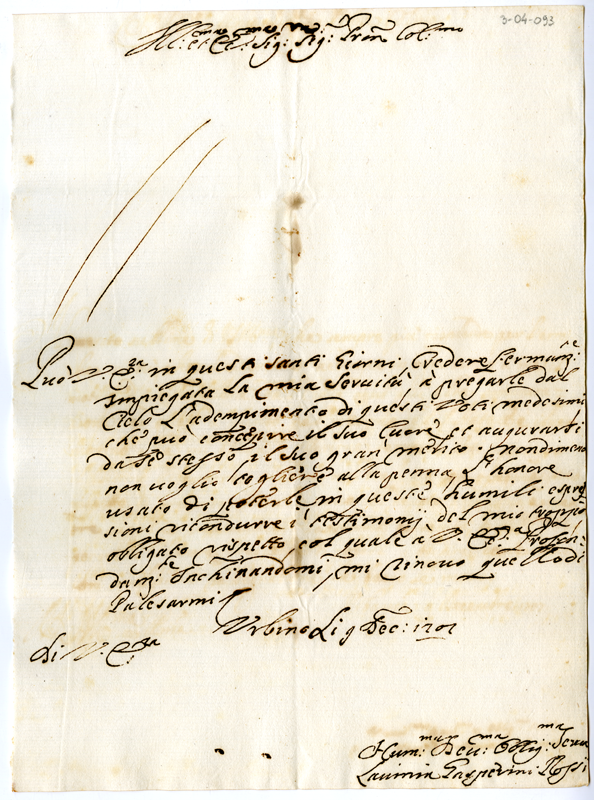 3-04-093
Ill:mo et Ecc:mo Sig:r Sig:r Pron Col:mo
Può V. E:za in questi santi Giorni, Credere fermam:te
Impiegata La mia Servitù à pregarle dal
Cielo L'adempimento di questi Voti medesimi
che può concepire il suo Cuore et augurarsi
da se stesso, il suo gran merito: nondimeno
non voglio togliere alla penna, L'honore
usato di poterle in queste humili espres
sioni ricondurre i testimonij del mio troppo
obligato rispetto, col quale à V. Ecc:za Profon:
dam:te Inchinandomi, mi rinovo quello di
Palesarmi
Urbino Li 9 Dec: 1701
Di V. E:za
Hum:ma Dev:ma Oblig:ma Serva
Lavinia Gasperini Rossi